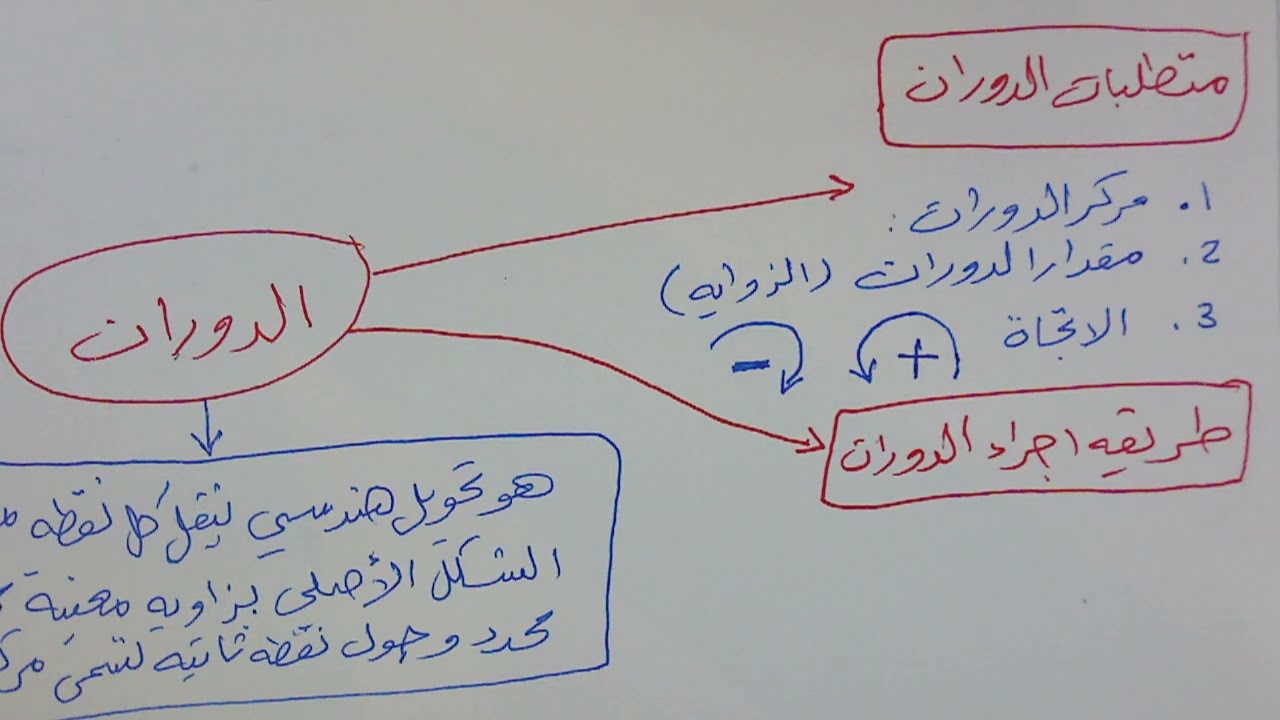 متطلبات الدوران
1. مركز الدوران:
2. مقدار الدوران (الزوايه)
3. الاتجاة
- +
الدوران
طريقه اجراء الدوران
هو تحويل هندسي ينقل كل نقطه
الشكل الأصلي بزاويه معينة
محدد وحول نقطه ثابته تسمى